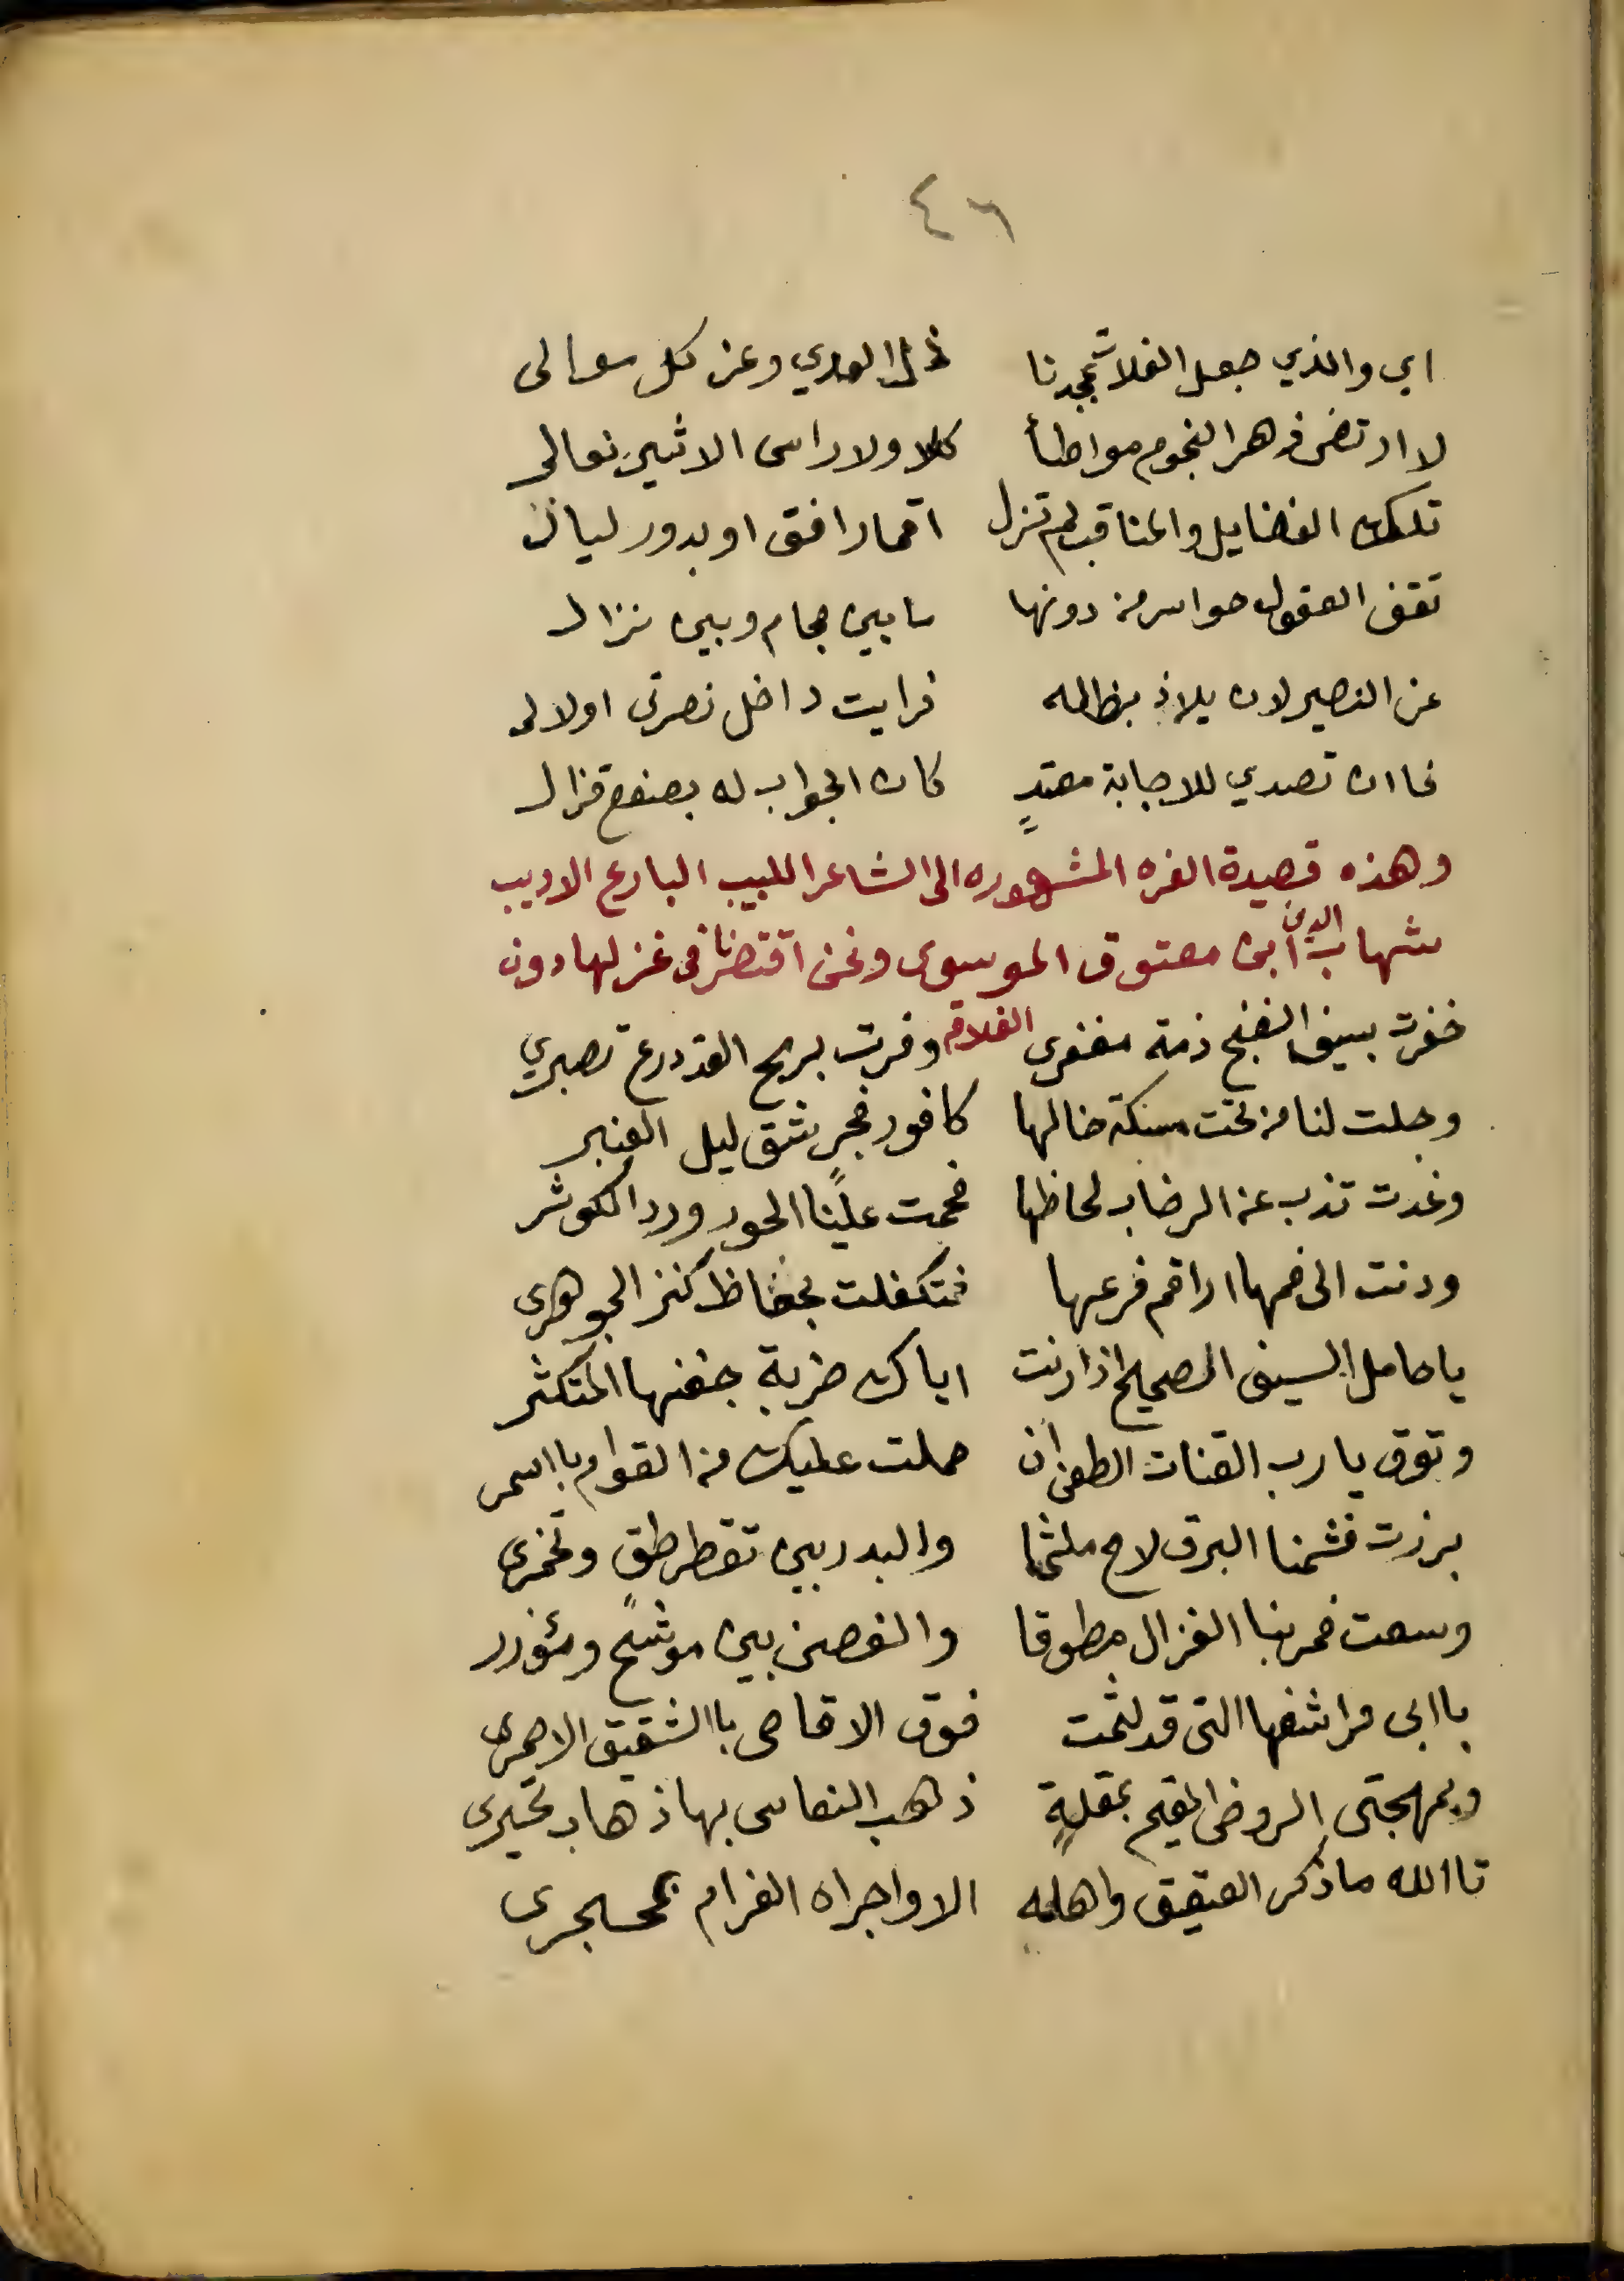 ٤٦
اي والذي جعل الفلا تمجدنا ذل العدي وعز كل موالى
لا ارتضى زهر النجوم مواطأ كلا ولا راس الاثير نعالى
تلك الفضايل والمناقب لم تزل اقمار افق او بدور ليال
تقف العقول حواسر من دونها ما بين حجام وبين نزال
عن النصير لان يلاذ بظله فرايت داخل نصرتى اولالى
فاان تصدي للاجابة معتدٍ كان الجواب له بصفع قذال
وهذه قصيدة الغره المشهوره الى الشاعر اللبيب البارع الاديب
شهاب الدين ابن معتوق الموسوى ونحن اقتصرنا فى غزلها دون
خفرت بسيف الغنج ذمة مغفرى وفرت برمح القد درع تصبري
وجلت لنا من تحت مسكة خالها كافور فجرٍ شق ليل العنبر
وغدت تذب عن الرضاب لحاظها فحمت علينا الحور ورد الكوثر
ودنت الى فمها اراقم فرعها فتكفلت بحفاظ كنز الجوهرى
يا حامل السيف الصحيح اذا رنت اياك ضربة جفنها المتكثر
وتوق يا رب القنات الطعن ان حملت عليك من القوام بااسمر
برزت فشمنا البرق لاح ملثما والبدر بين تقطرطقٍ وتخمرى
وسعت فمر بنا الغزال مطوقا والغصن بين موشح ومئوزر
باابى مراشفها التى قد لثمت فوق الاقاحى باالشقيق الاحمرى
وبمهجتى الروض المقيم بمقلةٍ ذهب النعاس بها ذهاب تحيرى
تاالله ما ذكر العقيق واهله الا واجراه الغرام بمحجرى